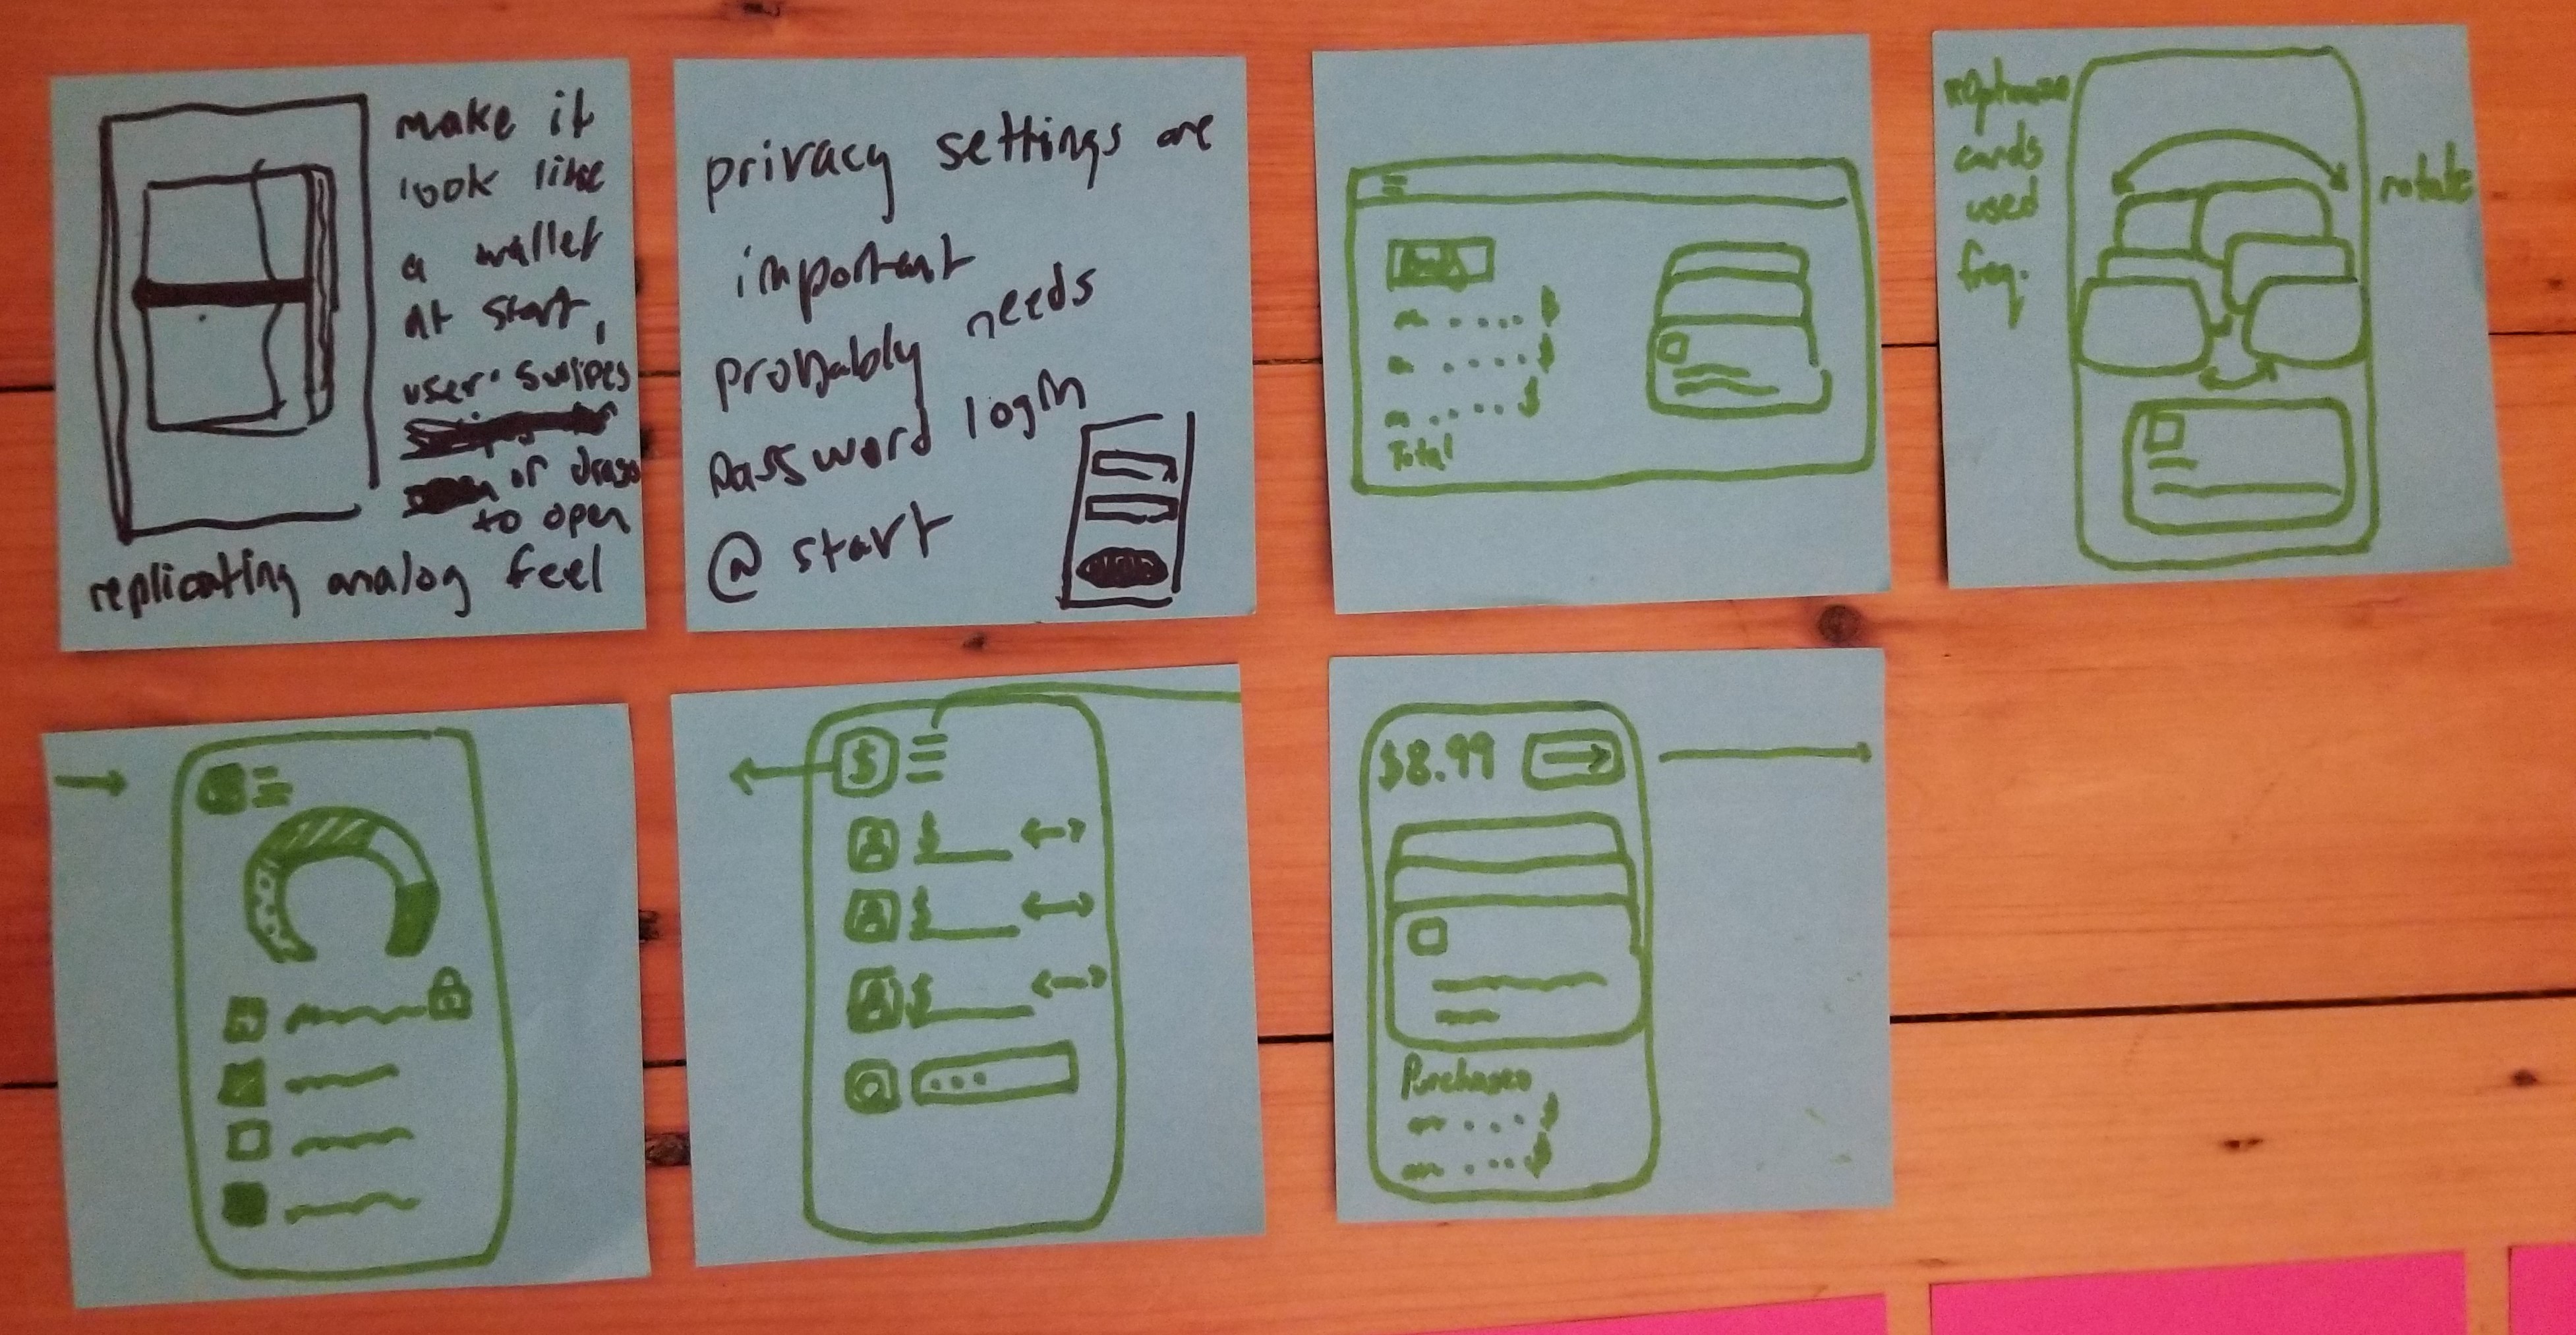 make it
look like
a wallet
at start,
user swipes
or drags
to open
replicating analog feel
privacy settings are
important
probably needs
password login
@ start
Total
cards
used
freq.
rotate
$
$
$
$
$8.99
Purchases